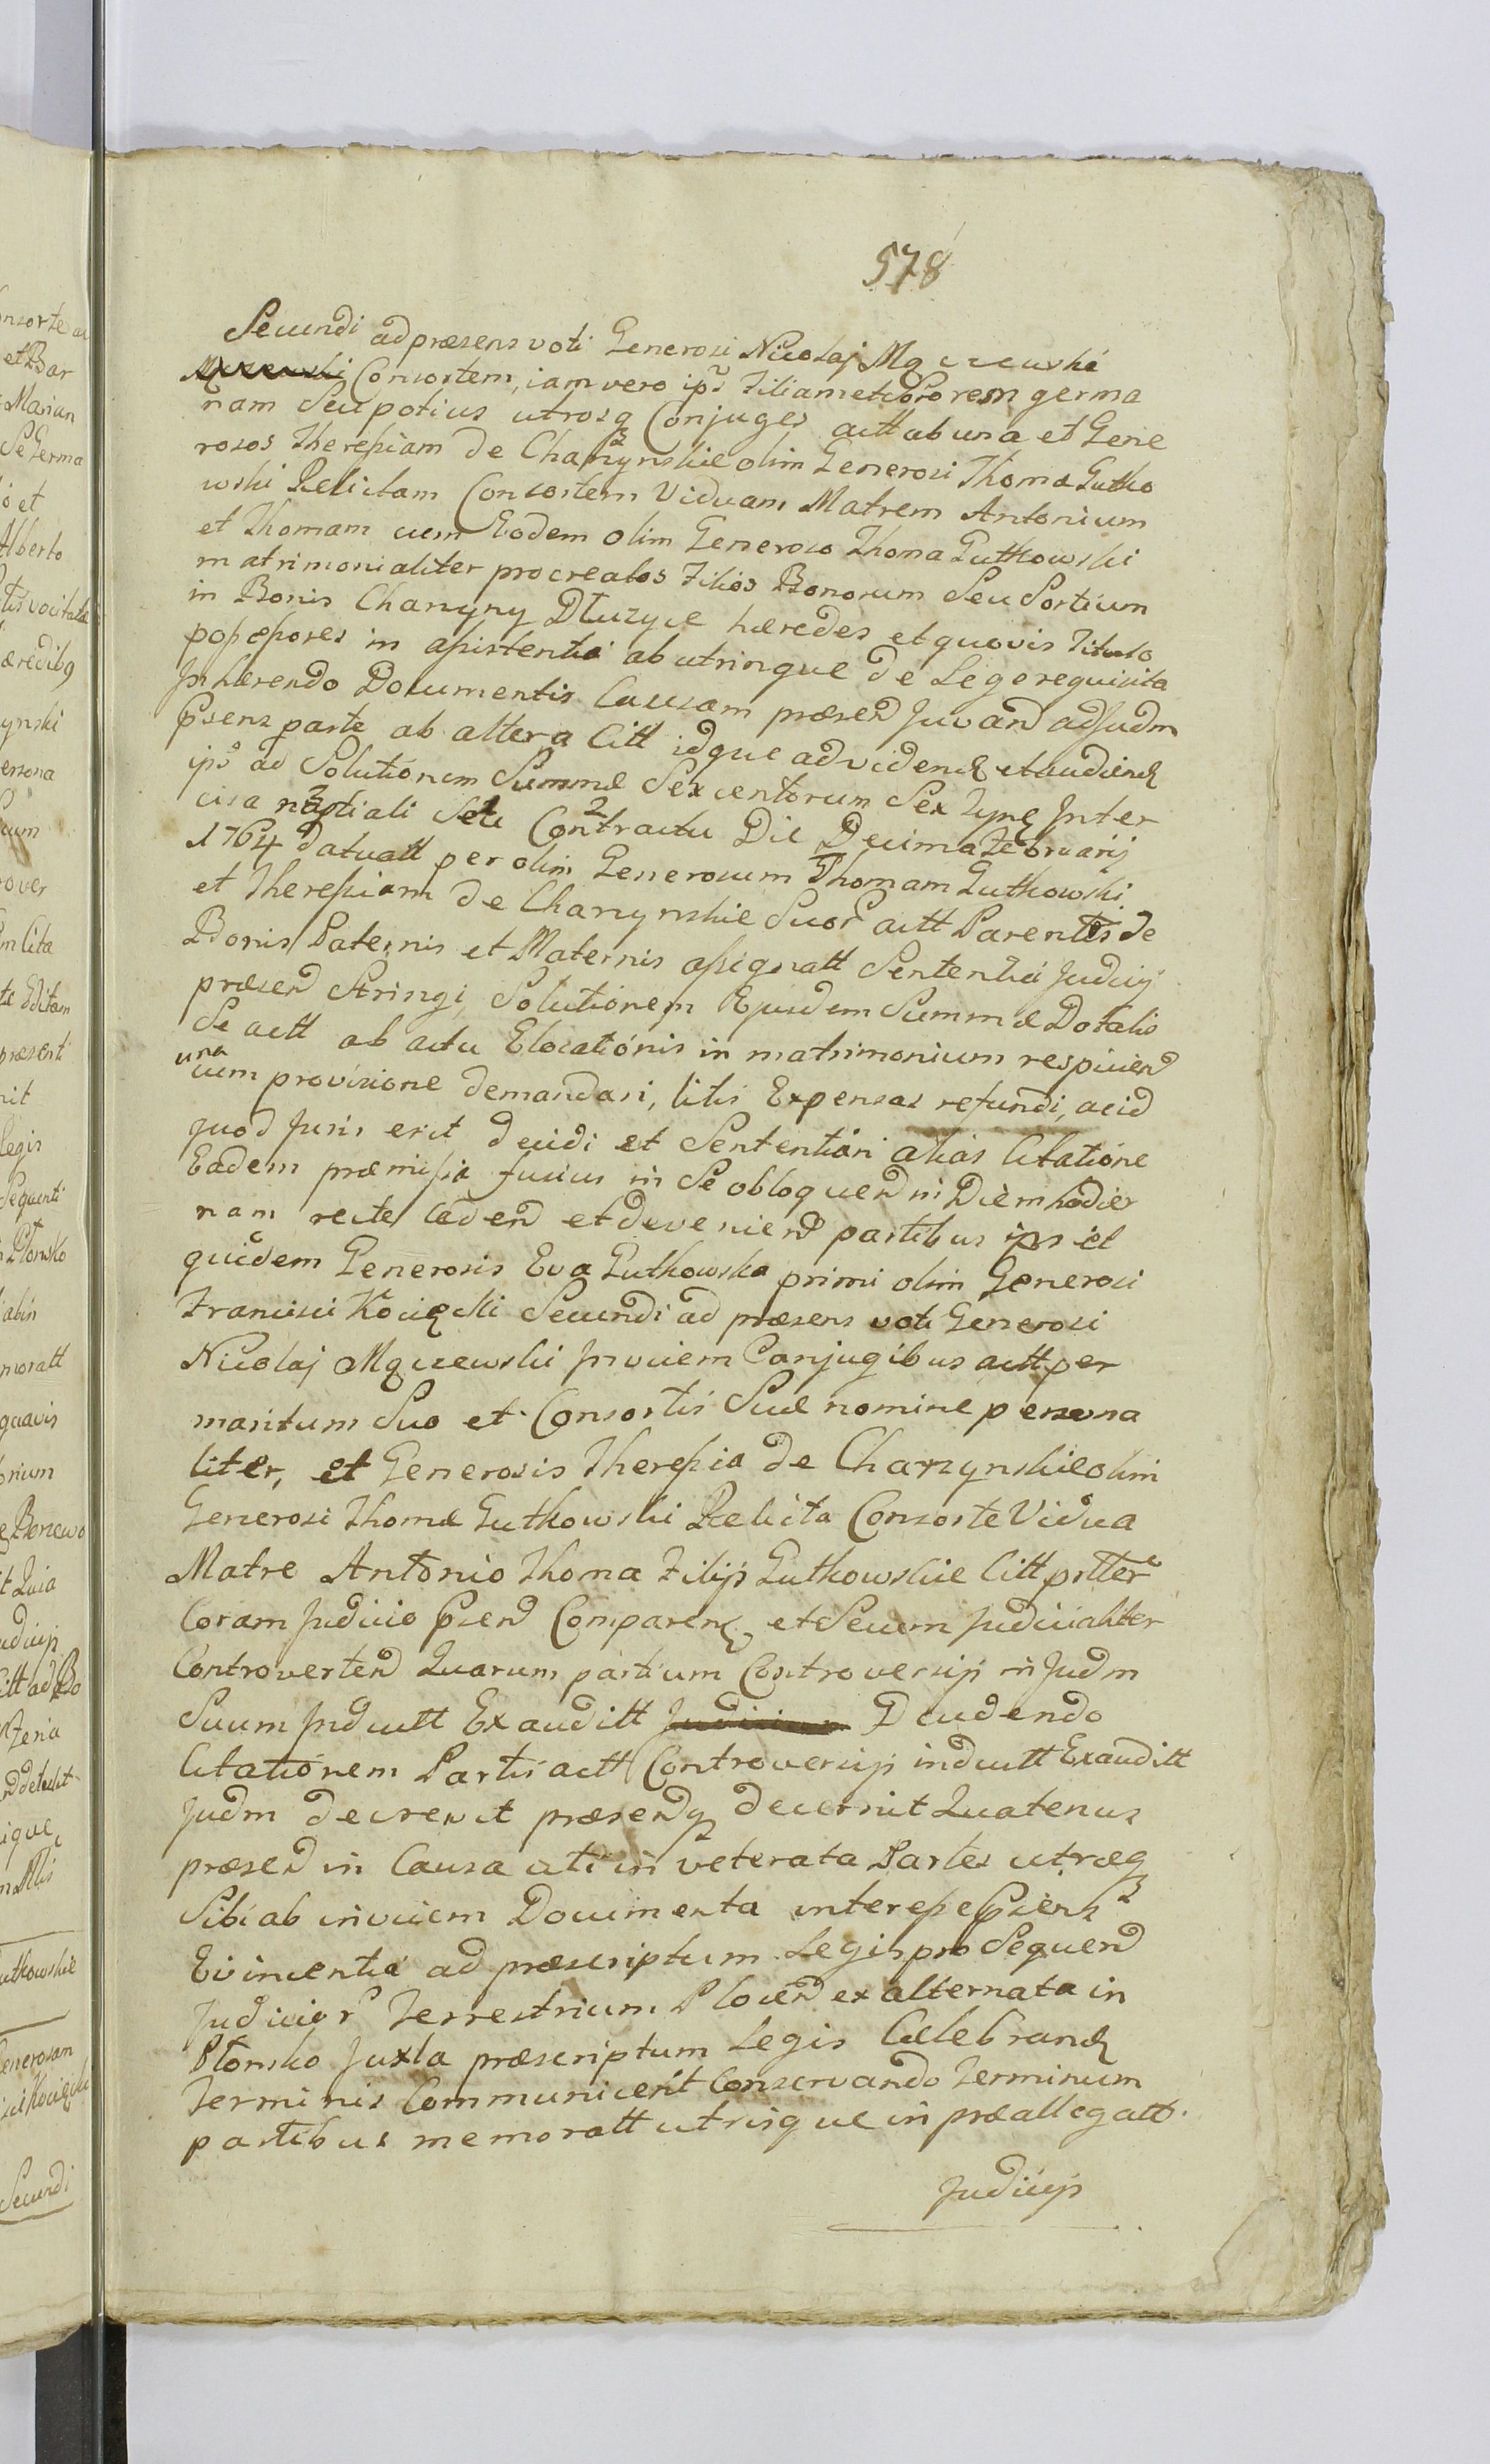 578
Secundi ad præsens voti Generosi Nicolaj Mączewski
Consortem, iam vero ips Filiam et Sororem germa
nam Seu potius utrosq Conjuges actt ab una et Gene
rosos Theressiam de Charzynskie olim Generosi Thomæ Gutko
wski Relictam Consortem Viduam Matrem Antonium
et Thomam cum Eodem olim Generoso Thoma Gutkowski
matrimonialiter procreatos Filios Bonorum Seu Sortium
in Bonis Charzyny Dłuzyce hæredes et quovis Titulo
possessores in assistentia ab utrinque de Lege requisita
Inhærendo Documentis Causam præsen Juvan ad Judm
Psens parte ab altera Citt idque ad videnđ et audienđ
ips ad Solutionem Summæ Sexcentorum Sex Tynf Inter
cisa nuptiali Seu Contractu Die Decima Februarij
1764 datuatt per olim Generosum Thomam Gutkowski
et Theressiam de Charzynskie Suor actt Parentes de
Bonis Paternis et Maternis assignatt Sententia Judicij
præsen Stringi, Solutionem Ejusdem Summæ Dotalis
Se actt ab actu Elocationis in matrimonium respicien
una
cum provisione demandari, litis Expensas refundi, ac id
quod Juris erit decidi et Sententiari alias Citatione
Eadem præmissa fusius in Se obloquen in Diem hodier
nam recte caden et devenien partibus ips et
quidem Generosis Eva Gutkowska primi olim Generosi
Francisci Kocięcki Secundi ad præsens voti Generosi
Nicolaj Mączewski Invicem Conjugibus actt per
maritum Suo et Consortis Suæ nomine persona
liter, et Generosis Theressia de Charzynskie olim
Generosi Thomæ Gutkowski Relicta Consorte Vidua
Matre Antonio Thoma Filijs Gutkowskie Citt prtter
Coram Judicio Psen Comparen et Secum Judicialiter
Controverten Quarum partium Controversijs in Judm
Suum Inductt Exauditt Judicium Deudendo
Citationem Partis actt Controversijs inductt Exauditt
Judm decrevit præsenq decernit Quatenus
præsen in Causa uti inveterata Partes utræq
Sibi ab invicem Documenta interesse Psens
Evincentia ad præscriptum Legis pro Sequen
Judicior Terrestrium Plocen ex alternata in
Płonsko Juxta præscriptum Legis Celebranđ
Terminis Communicent Conservando Terminum
partibus memoratt utrisque in præallegatt
Judicijs